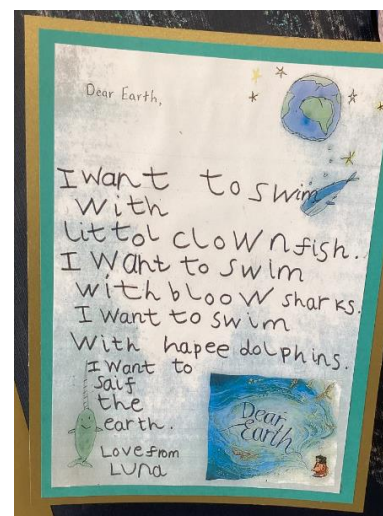 Dear Earth,
I want to swim
with
littol clownfish.
I want to swim
with bloow sharks.
I want to swim
with hapee dolphins.
I want to
saif
the
earth.
Love from
Luna
Dear
Earth